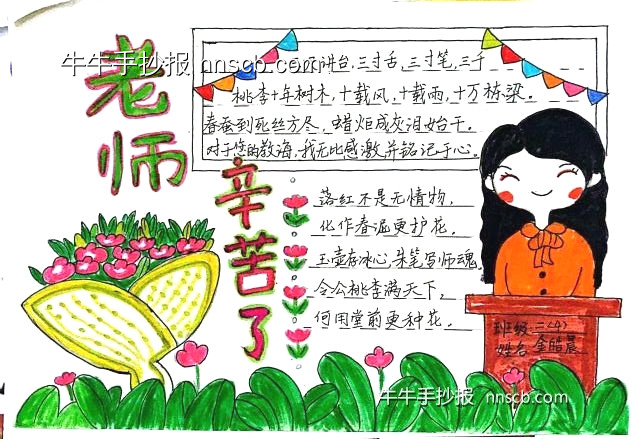 老师
辛苦了
牛牛手抄报 nnscb.com
讲台,三寸舌,三寸笔,三千
桃李十年树木,十载风,十载雨,十万栋梁。
春蚕到死丝方尽,蜡炬成灰泪始干。
对于您的教诲,我无比感激并铭记于心。
落红不是无情物,
化作春泥更护花。
玉壶存冰心,朱笔写师魂,
令公桃李满天下,
何用堂前更种花。
班级:二(4)
姓名:金皓晨
牛牛手抄报 nnscb.com